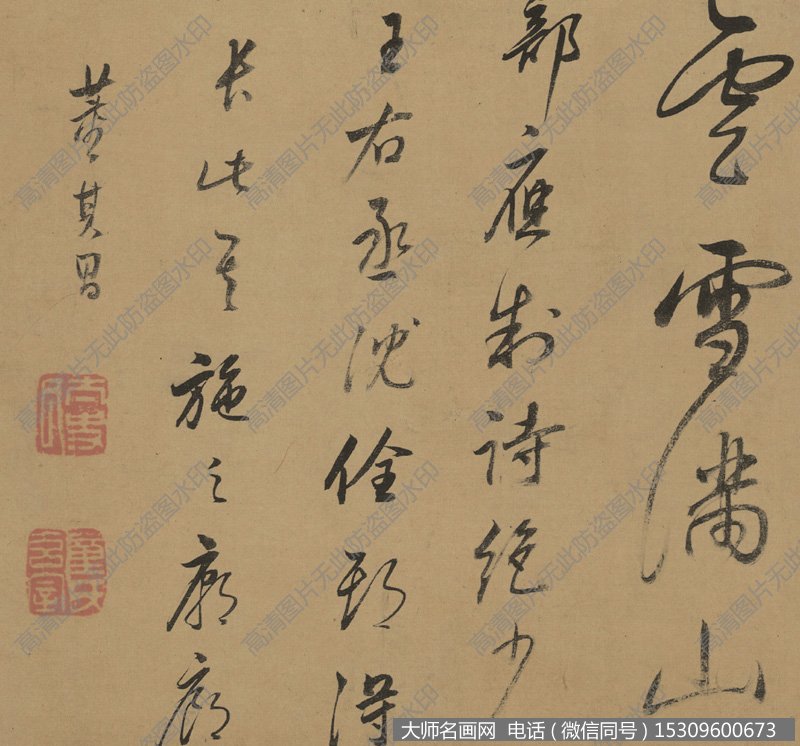 雲雪滿山
部應制詩絕少
王右丞沈佺期得
長此其施之廟廊
董其昌
高清图片无此防盗图水印
大师名画网 电话（微信同号）15309600673